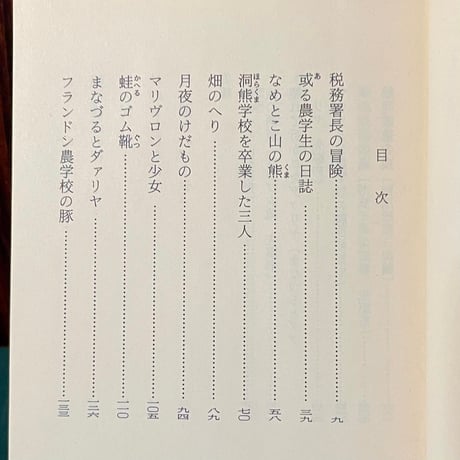 目次
税務署長の冒険……………九
或る農学生の日誌……………三九
なめとこ山の熊……………五八
洞熊学校を卒業した三人……………七〇
畑のへり……………八九
月夜のけだもの……………九四
マリヴロンと少女……………一〇五
蛙のゴム靴……………一一〇
まなづるとダァリヤ……………一二六
フランドン農学校の豚……………一三三